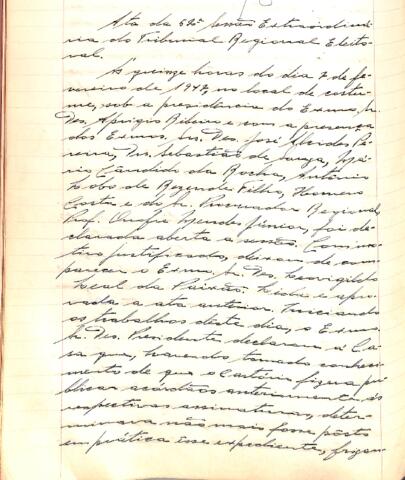 Ata da 62ª Sessão Extraordiná-
ria do Tribunal Regional Eleito-
ral.
Às quinze horas do dia 7 de fe-
vereiro de 1947, no local de costu-
me, sob a presidencia do Exmo. Sr.
Des. Aprigio Ribeiro e com a presença
dos Exmos. Srs. Des. José Alcides Pe-
reira, Drs. Sebastião de Souza, Má-
rio Cândido da Rocha, Antônio
Lobo de Rezende Filho, Homero
Costa e do Sr. Procurador Regional,
Prof. Onofre Mendes Júnior, foi de-
clarada aberta a sessão. Com mo-
tivo justificado, deixou de com-
parecer o Exmo. Sr. Des. Leovigildo
Leal da Paixão. Lida e apro-
vada a ata anterior. Iniciando
os trabalhos deste dia, o Exmo.
Sr. Des. Presidente declarou à Ca-
sa que, havendo tomado conheci-
mento de que o Cartório fizera pu-
blicar acórdãos anteriormente às
respectivas assinaturas, deter-
minara não mais fosse pôsto
em prática esse expediente,